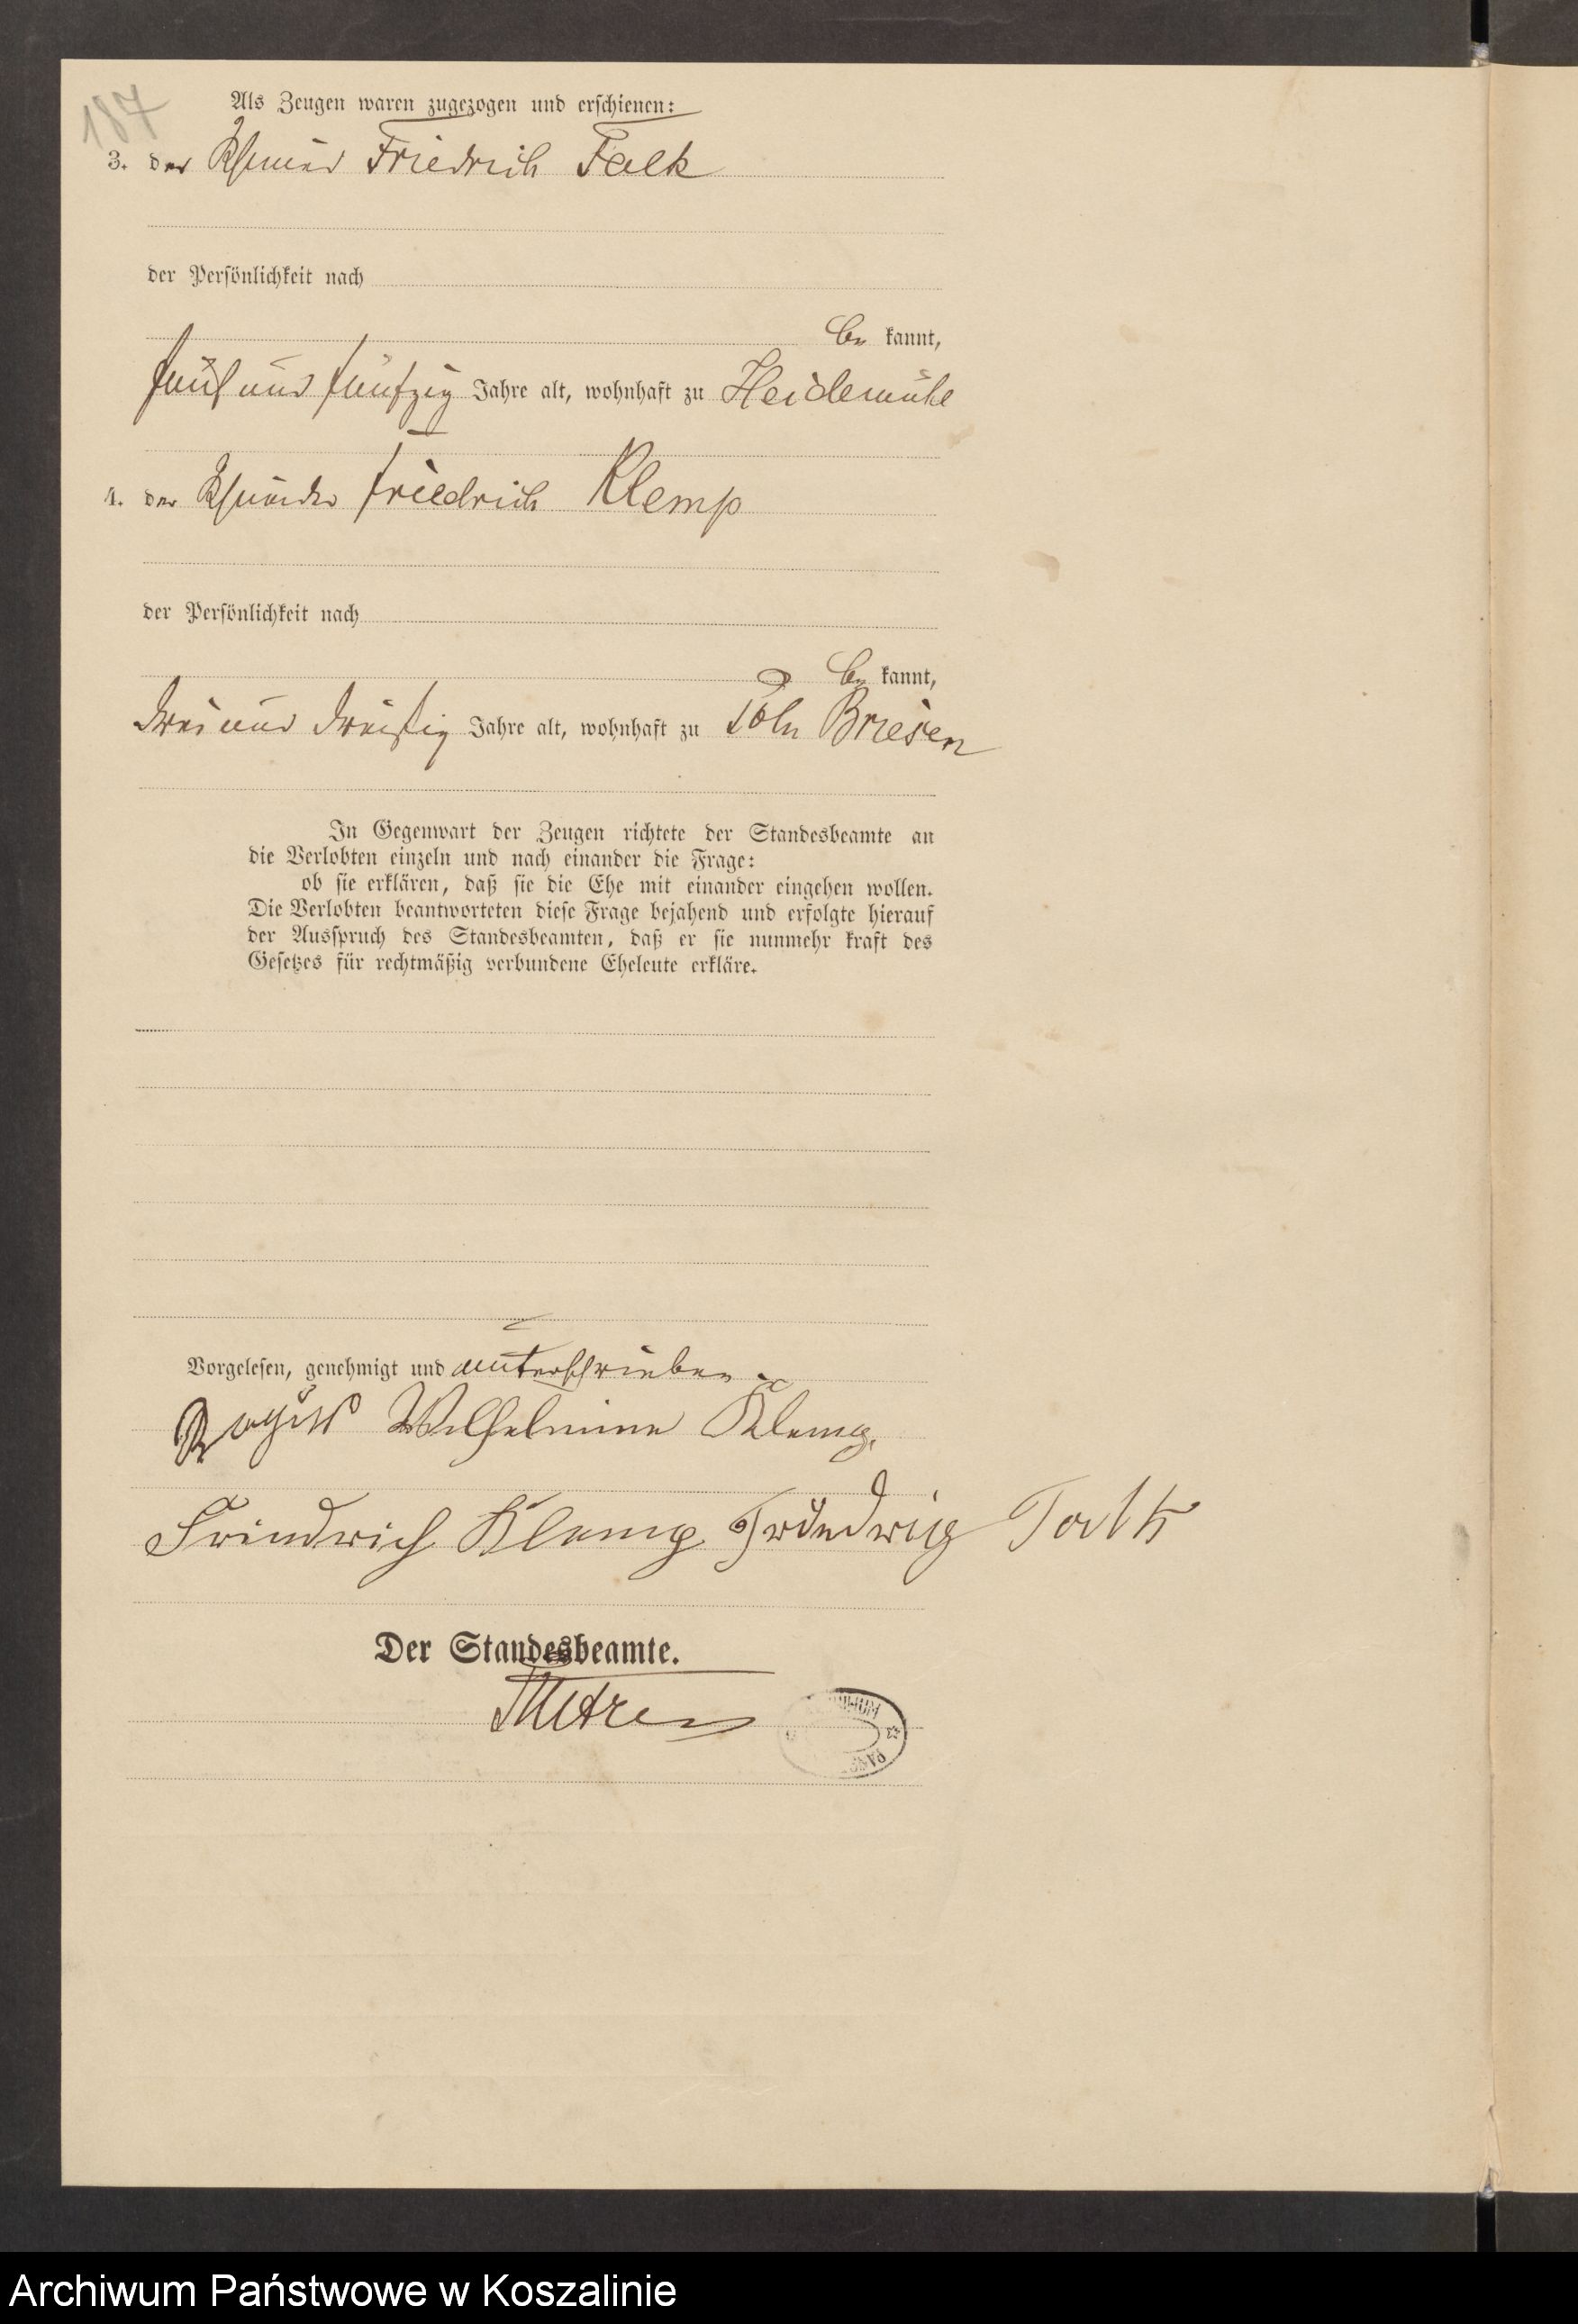 187
Als Zeugen waren zugezogen und erschienen:
3. der Friedrich Falk
der Persönlichkeit nach
be kannt,
fünf und fünfzig Jahre alt, wohnhaft zu Heidemühl
4. der Friedrich Klemp
der Persönlichkeit nach
be kannt,
drei und dreißig Jahre alt, wohnhaft zu Poln Briesen
In Gegenwart der Zeugen richtete der Standesbeamte an
die Verlobten einzeln und nach einander die Frage:
ob sie erklären, daß sie die Ehe mit einander eingehen wollen.
Die Verlobten beantworteten diese Frage bejahend und erfolgte hierauf
der Ausspruch des Standesbeamten, daß er sie nunmehr kraft des
Gesetzes für rechtmäßig verbundene Eheleute erkläre.
Vorgelesen, genehmigt und unterschrieben
Wilhelmine Klemp
Friedrich Klemp Friedrich Falk
Der Standesbeamte.
Archiwum Państwowe w Koszalinie